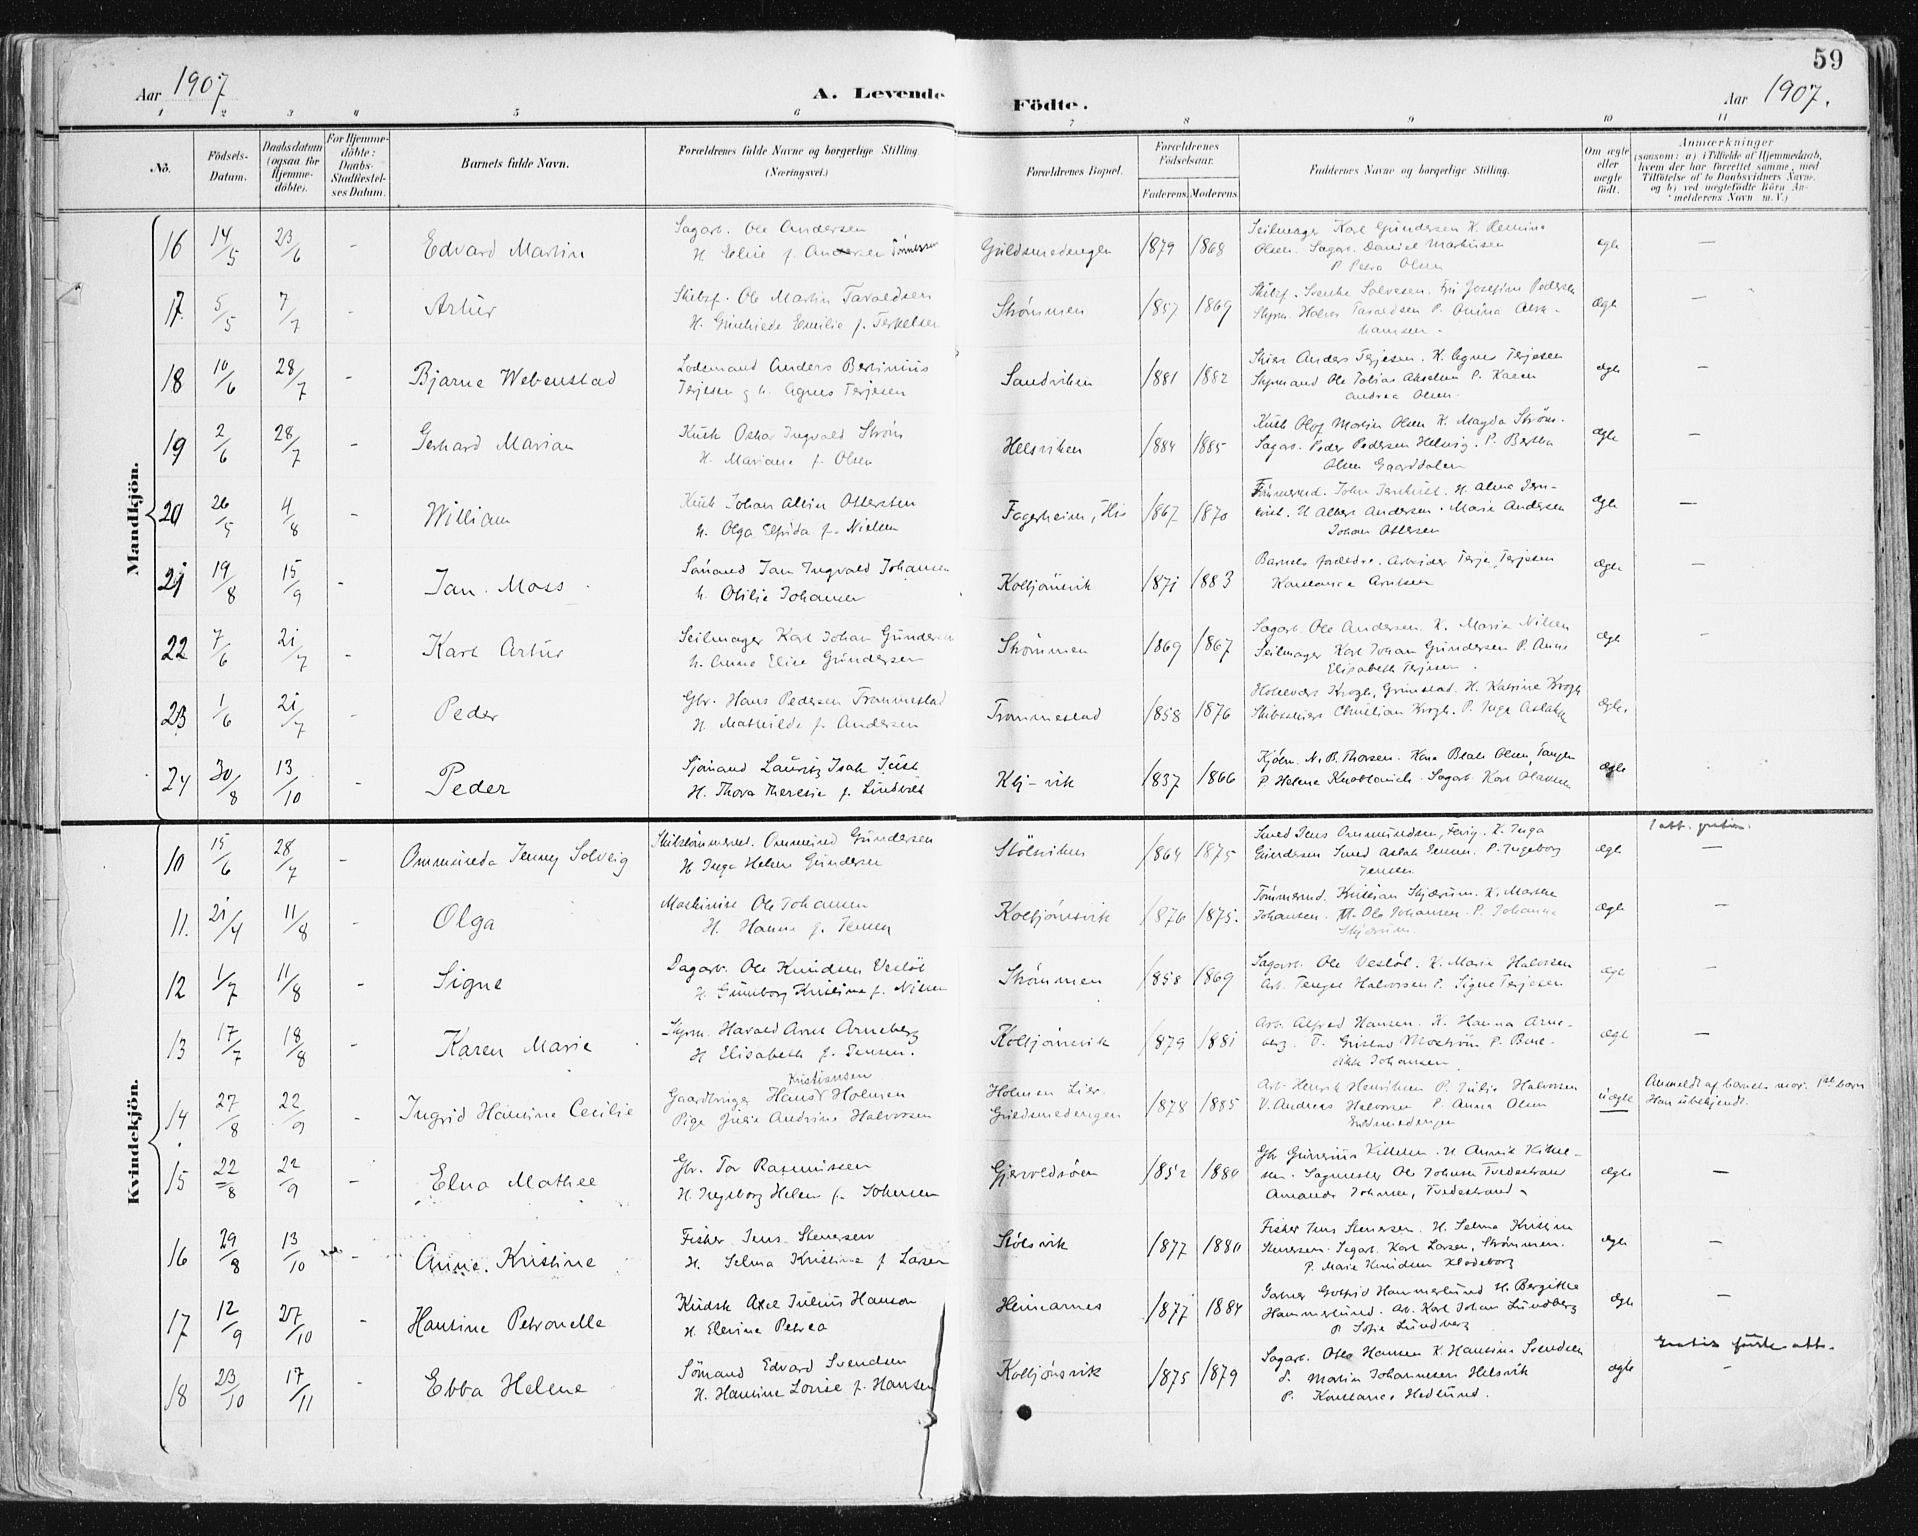 59
Aar 1907
A. Levende Födte.
Aar 1907.
1 2 3 4 5 6 7 8 9 10 11
No.
Födsels-
Datum.
Daabsdatum
(ogsaa for
Hjemme-
döbte).
For Hjemme-
döbte:
Daabs-
Stadfæstel-
ses Datum.
Barnets fulde Navn.
Forældrenes fulde Navne og borgerlige Stilling.
(Næringsvei.)
Forældrenes Bopæl.
Forældrenes
Födselsaar.
Faderens. Moderens.
Faddernes Navne og borgerlige Stilling.
Om ægte
eller
uægte
födt.
Anmærkninger
(saasom: a) i Tilfælde af Hjemmedaab,
hvem der har forrettet samme, med
Tilföielse af to Daabsvidners Navne,
og b) ved uægtefödte Börn An-
melderens Navn m. V.)
Mandkjön.
16 14/5 23/6 - Edvard Martin
Sagarb. Ole Andersen
H. Elise f. Andersen
Guldsmedengen 1879 1868
Seilmager Karl Gundersen K.
Olsen. Sagarb. Daniel Markussen
P. Petra Olsen
ægte —
17 5/5 7/7 - Artur
Skibsf. Ole Martin Taraldsen
H. Emilie f. Terkelsen
Strømmen 1857 1869
Skibsf. Salvesen. Josefine Pedersen
Styrm. Halvor Taraldsen P.
ægte —
18 10/6 28/7 - Bjarne Webenstad
Lodsmand Anders Bertinius
Terjesen g h. Agnes Terjesen
Sandviken 1881 1882
Anders Terjesen. K. Agnes Terjesen
Styrmand Ole Tobias Akselsen P. Karen
Andrea Olsen.
ægte —
19 2/6 28/7 - Gerhard Marian
Kusk Oskar Ingvald Strøm
H. Mariane f. Olsen
Helsviken 1884 1885
Kusk Olaf Martin Olsen K. Magda Strøm.
Sagarb. Peder Pedersen Helsvig. P. Bertha
Olsen Gaarddalen
ægte —
20 26/5 4/8 - William
Kusk Johan Alvin Ottersen
h. Olga Elfrida f. Nielsen
Fagerheim, His 1867 1870
Tømmermd. John H. Alma
Albert Andersen. Marie Andersen
Johan Ottersen
ægte —
21 19/8 15/9 - Jan. Moss
Sømand Jan Ingvald Johansen
h. Otilie Johansen
Kolbjønsvik 1871 1883
Barnets forældre. Arbeider Terje Terjesen
Konstance Arntsen
ægte —
22 7/6 21/7 - Karl Artur
Seilmager Karl Johan Gundersen
h. Anna Elise Gundersen
Strømmen 1869 1867
Sagarb. Ole Andersen. K. Marie Nilsen
Seilmager Karl Johan Gundersen P. Anne
Elisabeth Terjesen.
ægte —
23 1/6 21/7 - Peder
Gbr. Hans Pedersen Trommestad
H. Mathilde f. Andersen
Trommestad 1858 1876
Krogh, Grimstad. H. Katrine Krogh
Christian Krogh. P. Inga
ægte.
24 30/8 13/10 - Peder
Sjømand Lauritz Isak
H. Thora Theresie f.
Kbj-vik 1837 1866
Kjøbm. N. B. Thorsen. Olsen, Tangen
P. Helene Sagarb. Karl Olavsen
ægte
Kvindekjön.
10 15/6 28/7 - Ommunda Jenny Solveig
Skibstømmermd. Ommund Gundersen
H. Inga Helene Gundersen
Stølsviken 1864 1875
Smed Jens Ommundsen, K. Inga
Gundersen Smed Aslak Jensen. P. Ingeborg
Jensen
ægte —
1 att. gratis.
11. 21/4 11/8 Olga
Maskinist Ole Johansen
H. Hanna f. Jensen
Kolbjønsvik 1876 1875.
Tømmermd. Kristian K. Marthe
Johansen. Ole Johansen. P. Johanna
ægte —
12 1/7 11/8 - Signe
Dagarb. Ole Knudsen Vestøl
H. Gunborg Kristine f. Nilsen
Strømmen 1858 1869
Sagarb. Ole Vestøl. K. Marie Halvorsen
Arb. Halvorsen P. Signe Terjesen
ægte —
13 17/7 18/8 - Karen Marie
Styrm. Harald Arnt Arneberg
H Elisabeth f. Jensen.
Kolbjønsvik 1879 1881
Arb. Alfred Hansen. K. Hanna Arne-
berg. Gustav P.
Johansen
ægte —
14 27/8 22/9 Ingrid Hansine Cecilie
Kristiansen
Gaardbruger Hans Holmen
Pige Julie Andrine Halvorsen
Holmen Lier.
Guldsmedengen 1878 1885
Arb. Henrik Henriksen P. Julie Halvorsen
V. Andreas Halvorsen P. Anna Olsen
Guldsmedengen
uægte
Anmeldt af barnets mor. 1ste barn
Han ubekjendt.
15 22/8 22/9 - Elna Mathee
Gbr. Tor Rasmussen
H. Ingeborg Helene f. Johnsen
Gjervoldsøen 1852 1884
Gbr. Gunerius
Sagmester Ole Johnsen Tvedestrand
Amanda Johnsen, Tvedestrand
ægte —
16 29/8 13/10 - Anne. Kristine
Fisher Jens Stenersen
H. Selma Kristine f Larsen
Stølsvik 1877 1880
Fisher Jens Stenersen. H. Selma Kristine
Stenersen. Sagarb. Karl Larsen, Strømmen.
P. Marie Knudsen Klodeborg
ægte —
17 12/9 27/10 - Hansine Petronelle
Kudsk Axel Julius Hanson
H. Elevine Petrea
Heimarnes 1877 1884
Gotfrid Hammerlund H. Bergitte
Hammerlund. Arb. Karl Johan Lundberg
P. Sofie Lundberg
ægte —
18 23/10 17/11 Ebba Helene
Sömand Edvard Svendsen
H. Hansine Lovise f. Hansen
Kolbjønsvik 1875 1879
Sagarb. Otto Hansen K. Hansine Svendsen
S. Martin Johannesen Helsvik
P. Konstance Hedlund.
ægte -
Gratis første att.